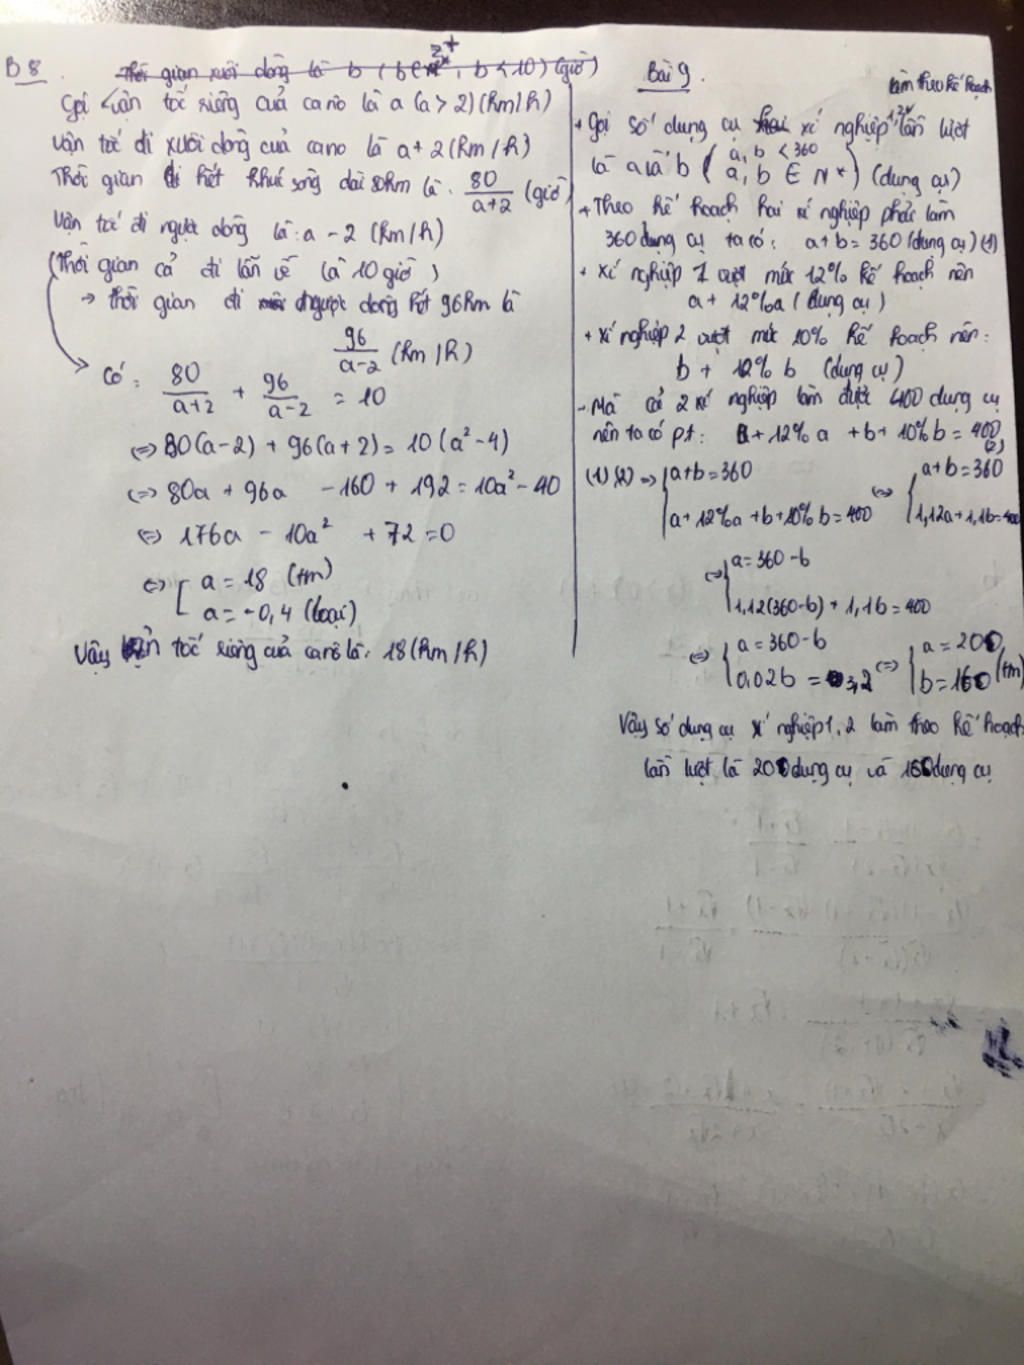 B8.
Thời gian xuôi dòng là b (b ∈ Z⁺, b < 10) (giờ)
Gọi vận tốc riêng của cano là a (a > 2) (km/h)
Vận tốc đi xuôi dòng của cano là a + 2 (km/h)
Thời gian đi hết khúc sông dài 80km là: 80/(a+2) (giờ)
Vận tốc đi ngược dòng là: a - 2 (km/h)
(Thời gian cả đi lẫn về là 10 giờ)
→ thời gian đi ngược dòng hết 96km là
96/(a-2) (km/h)
Có: 80/(a+2) + 96/(a-2) = 10
<=> 80(a-2) + 96(a+2) = 10(a²-4)
<=> 80a + 96a - 160 + 192 = 10a² - 40
<=> 176a - 10a² + 72 = 0
<=> [ a = 18 (tm)
a = -0,4 (loại)
Vậy vận tốc riêng của cano là: 18 (km/h)
Bài 9.
làm theo kế hoạch
+ Gọi số dụng cụ xí nghiệp 1,2 lần lượt
là a và b ( a, b < 360
a, b ∈ N* ) (dụng cụ)
+ Theo kế hoạch hai xí nghiệp phải làm
360 dụng cụ ta có: a+b = 360 (dụng cụ) (1)
+ Xí nghiệp 1 vượt mức 12% kế hoạch nên
a + 12%a (dụng cụ)
+ Xí nghiệp 2 vượt mức 10% kế hoạch nên:
b + 12% b (dụng cụ)
- Mà cả 2 xí nghiệp làm được 400 dụng cụ
nên ta có pt: a + 12% a + b + 10% b = 400
(2)
(1)(2) => { a+b = 360
a + 12%a + b + 10% b = 400
<=> { a+b = 360
1,12a + 1,1b = 400
<=> { a = 360 - b
1,12(360-b) + 1,1b = 400
<=> { a = 360 - b
0,02b = 3,2
<=> { a = 200
b = 160 (tm)
Vậy số dụng cụ xí nghiệp 1, 2 làm theo kế hoạch
lần lượt là 200 dụng cụ và 160 dụng cụ